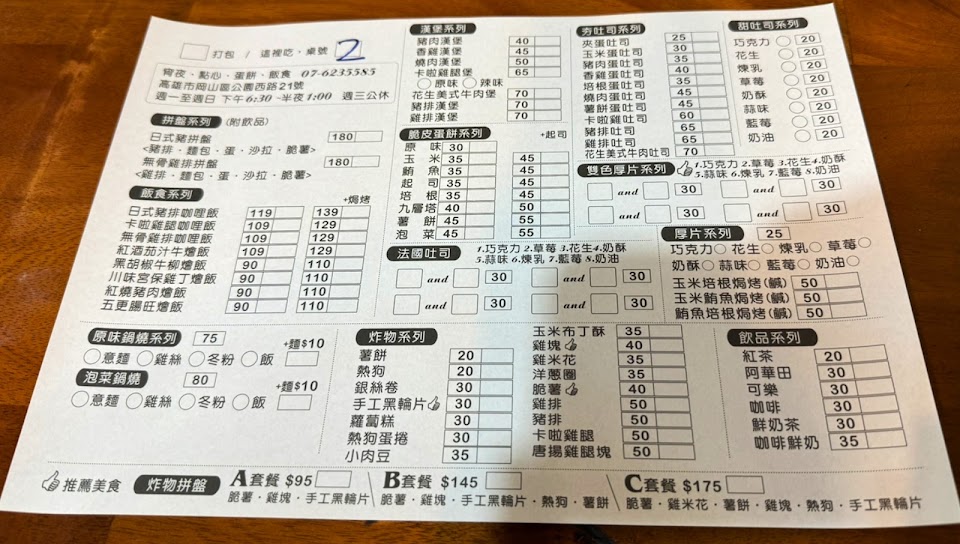 打包 / 這裡吃、桌號 2
宵夜、點心、蛋餅、飯食 07-6235585
高雄市岡山區公園西路21號
週一至週日 下午6:30~半夜1:00 週三公休
拼盤系列 (附飲品)
日式豬拼盤 180
<豬排、麵包、蛋、沙拉、脆薯>
無骨雞排拼盤 180
<雞排、麵包、蛋、沙拉、脆薯>
飯食系列 +焗烤
日式豬排咖哩飯 119 139
卡啦雞腿咖哩飯 109 129
無骨雞排咖哩飯 109 129
紅酒茄汁牛燴飯 109 129
黑胡椒牛柳燴飯 90 110
川味宮保雞丁燴飯 90 110
紅燒豬肉燴飯 90 110
五更腸旺燴飯 90 110
漢堡系列
豬肉漢堡 40
香雞漢堡 45
燒肉漢堡 50
卡啦雞腿堡 65
原味 辣味
花生美式牛肉堡 70
豬排漢堡 70
雞排漢堡 70
脆皮蛋餅系列 +起司
原味 30
玉米 35 45
鮪魚 35 45
起司 35 45
培根 35 45
九層塔 40 50
薯餅 45 55
泡菜 45 55
法國吐司 1.巧克力 2.草莓 3.花生 4.奶酥
5.蒜味 6.煉乳 7.藍莓 8.奶油
and 30 and 30
and 30 and 30
夯吐司系列
夾蛋吐司 25
玉米蛋吐司 30
豬肉蛋吐司 35
香雞蛋吐司 40
培根蛋吐司 35
燒肉蛋吐司 45
薯餅蛋吐司 45
卡啦雞吐司 60
豬排吐司 65
雞排吐司 65
花生美式牛肉吐司 70
甜吐司系列
巧克力 20
花生 20
煉乳 20
草莓 20
奶酥 20
蒜味 20
藍莓 20
奶油 20
雙色厚片系列 1.巧克力 2.草莓 3.花生 4.奶酥
5.蒜味 6.煉乳 7.藍莓 8.奶油
and 30 and 30
and 30 and 30
厚片系列 25
巧克力 花生 煉乳 草莓
奶酥 蒜味 藍莓 奶油
玉米培根焗烤(鹹) 50
玉米鮪魚焗烤(鹹) 50
鮪魚培根焗烤(鹹) 50
原味鍋燒系列 75 +麵$10
意麵 雞絲 冬粉 飯
泡菜鍋燒 80 +麵$10
意麵 雞絲 冬粉 飯
炸物系列
薯餅 20
熱狗 20
銀絲卷 30
手工黑輪片 30
蘿蔔糕 30
熱狗蛋捲 30
小肉豆 35
玉米布丁酥 35
雞塊 40
雞米花 35
洋蔥圈 35
脆薯 40
雞排 50
豬排 50
卡啦雞腿 50
唐揚雞腿塊 50
飲品系列
紅茶 20
阿華田 30
可樂 30
咖啡 30
鮮奶茶 30
咖啡鮮奶 35
推薦美食 炸物拼盤 A套餐 $95 B套餐 $145 C套餐 $175
脆薯、雞塊、手工黑輪片 脆薯、雞塊、手工黑輪片、熱狗、薯餅 脆薯、雞米花、薯餅、雞塊、熱狗、手工黑輪片